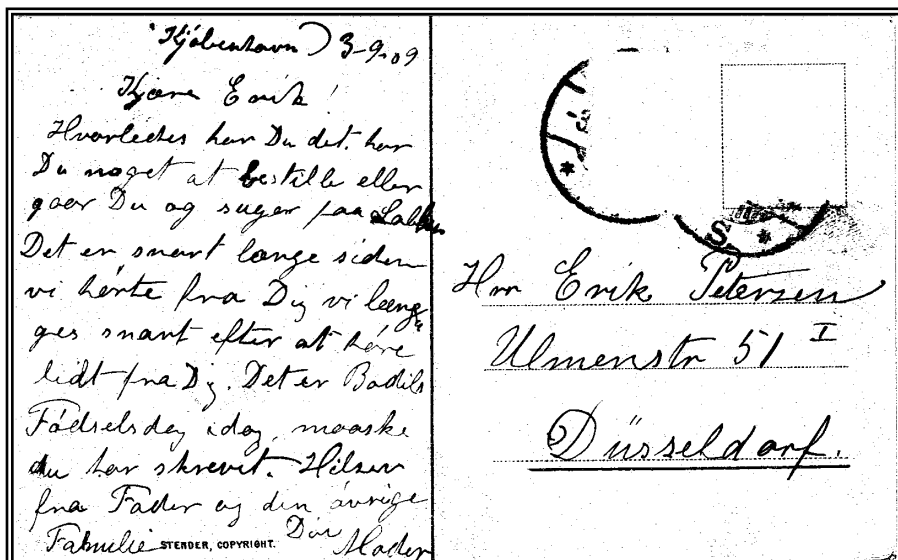 Kjöbenhavn) 3-9-09
Kjære Erik!
Hvorledes har Du det, har
Du noget at bestille eller
gaar Du og suger paa Labben
Det er snart længe siden
vi hörte fra Dig vi læng=
ges snart efter at höre
lidt fra Dig. Det er Bodils
Fødselsdag idag, maaske
du har skrevet. Hilsen
fra Fader og den övrige
Familie Din Moder
STENDER, COPYRIGHT.
Hrr Erik Petersen
Ulmenstr 51 I
Düsseldorf.